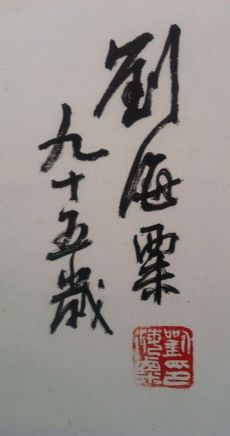 劉海粟
九十五歲